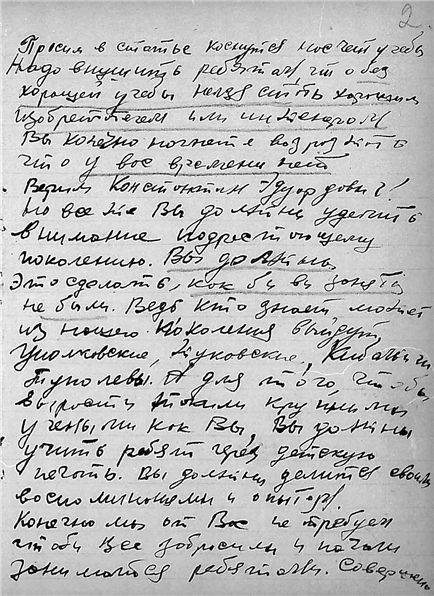 2.
Просим в статье коснутся насчет учебы
Надо внушить ребятам, что без
хорошей учебы нельзя стать хорошим
изобретателем или инженером!
Вы конечно начнете возражать
что у вас времени нет
Верим Константин Эдуардович!
Но все же Вы должны уделить
внимание подрастающему
поколению. Вы должны
Это сделать, как бы вы заняты
не были. Ведь кто знает может
из нашего поколения выйдут
Циолковские, Жуковские, Кибальчичи
Туполевы. А для того, чтобы
вырости такими крупными
учеными как Вы, Вы должны
учить ребят через детскую
печать. Вы должны делится своими
воспоминаниями и опытом.
Конечно мы от Вас не требуем
чтобы Все забросили и начали
заниматься ребятами. Совершенно